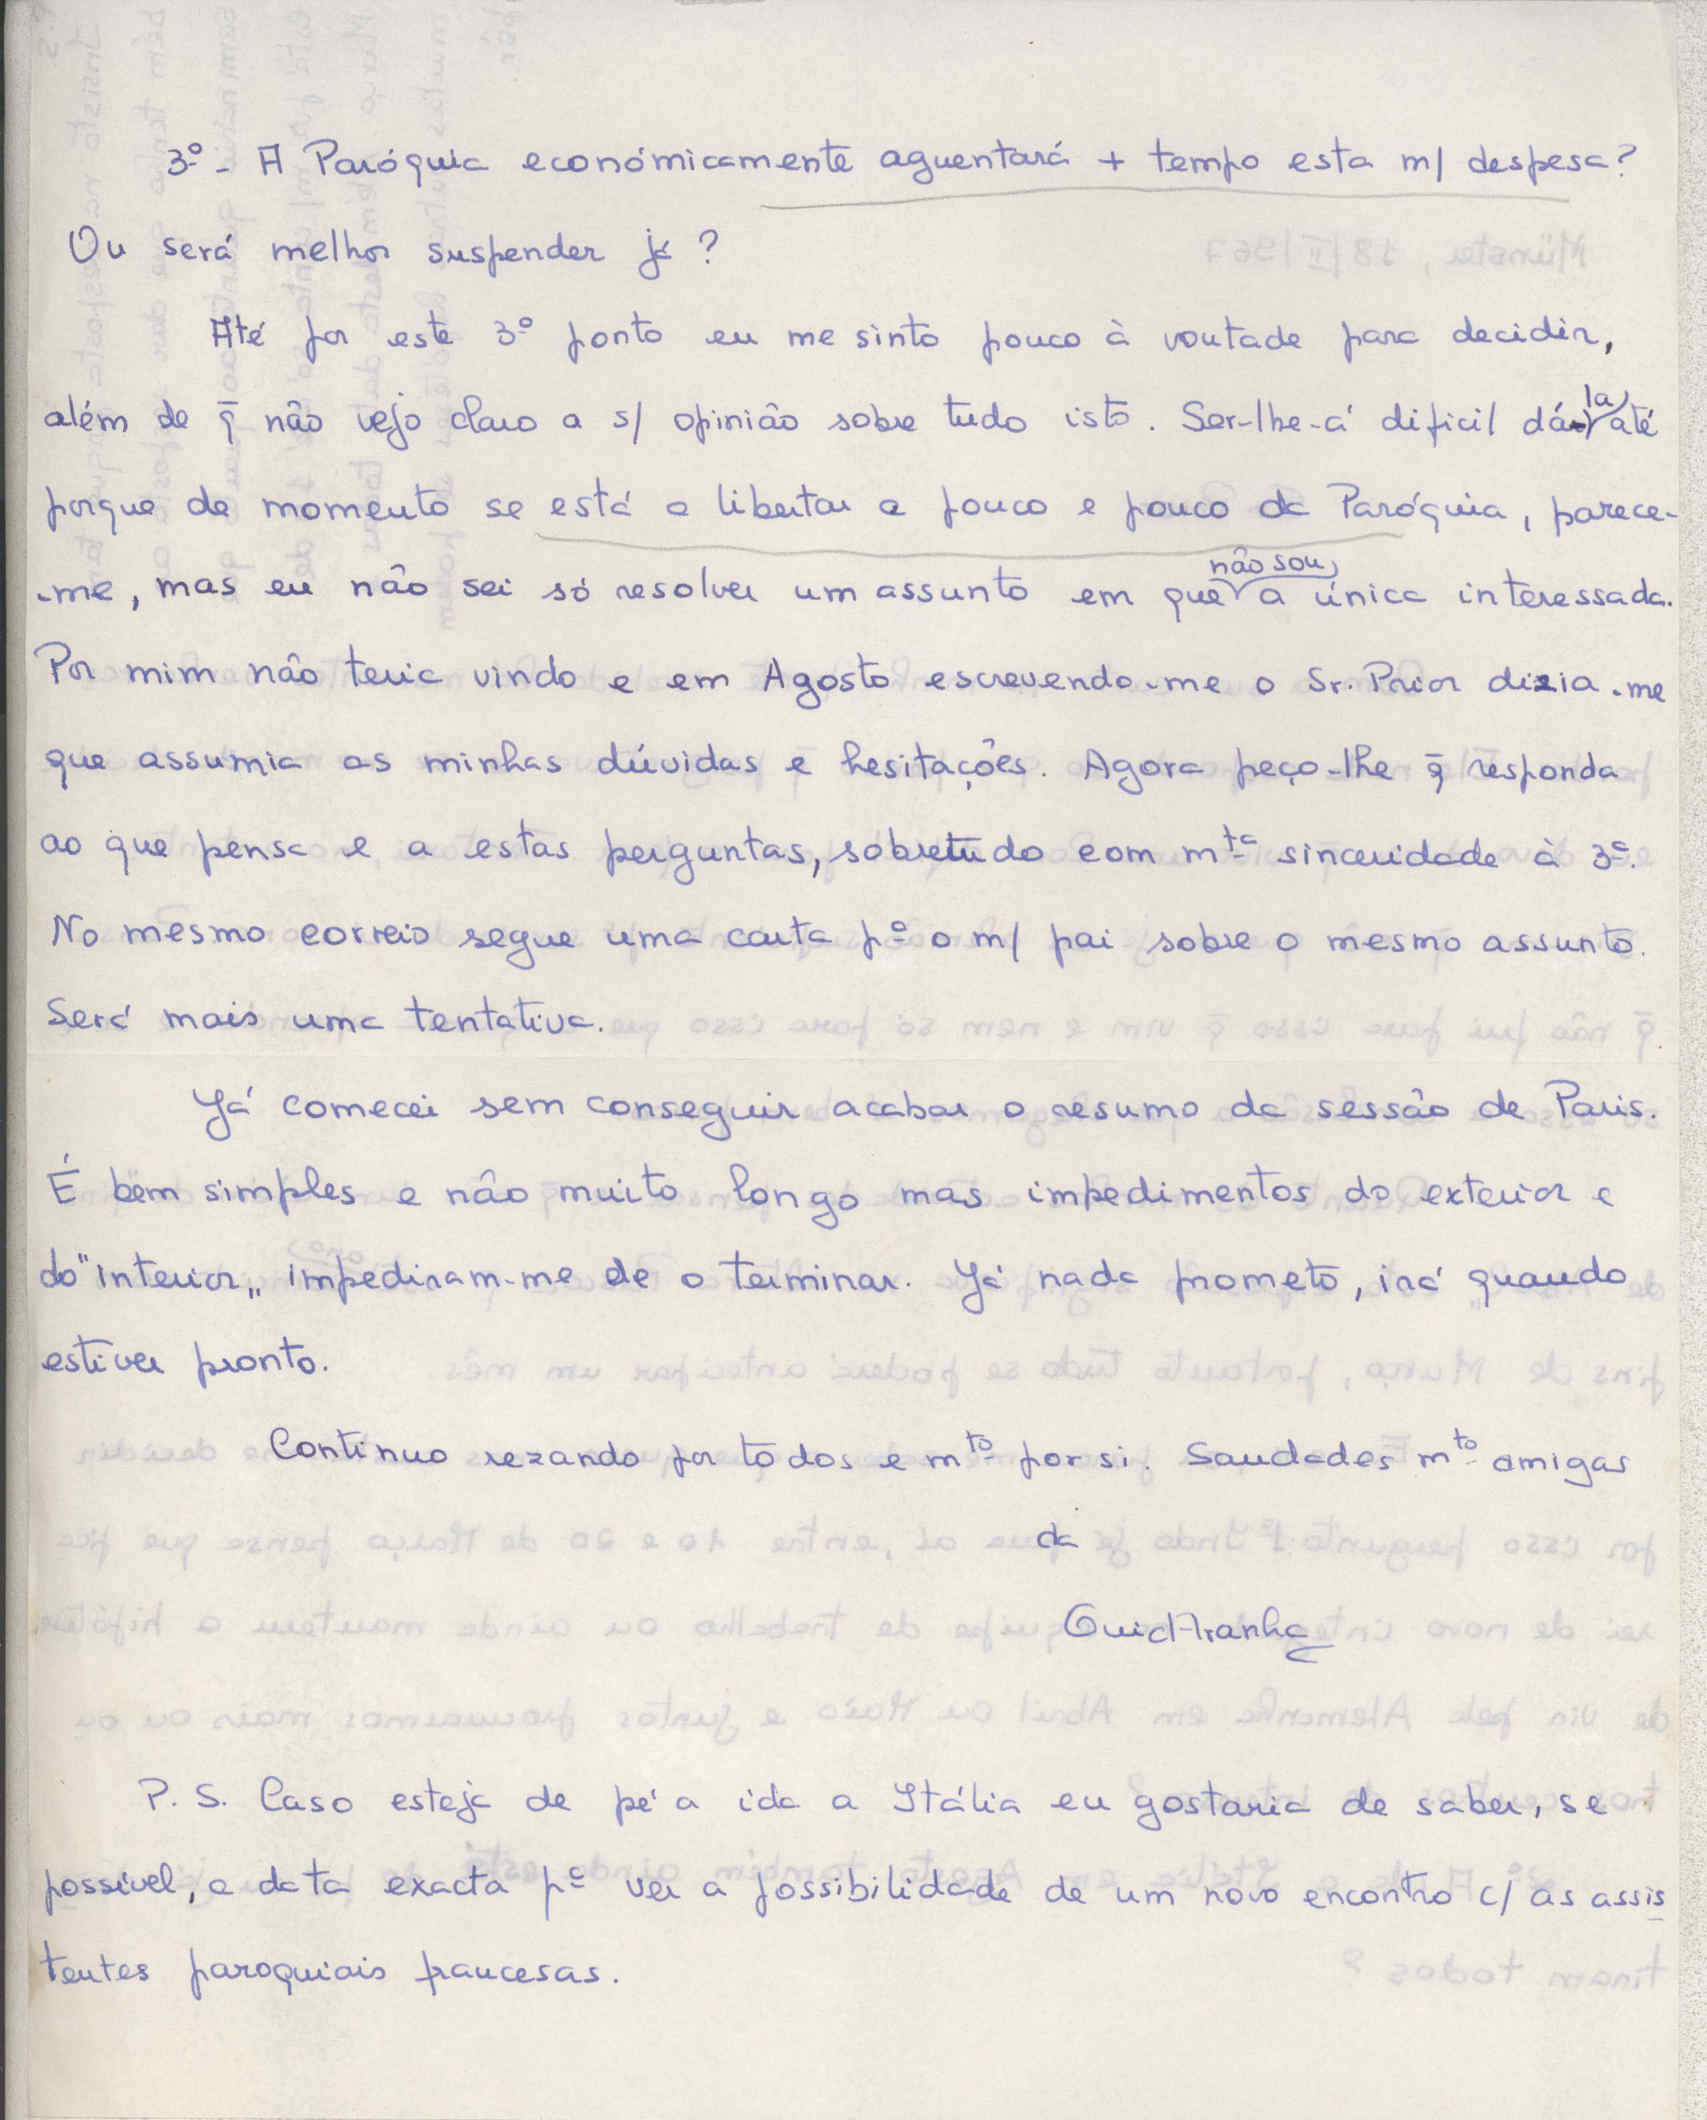 3º - A Paróquia económicamente aguentará + tempo esta m/ despesa?
Ou será melhor suspender já?
Até por este 3º ponto eu me sinto pouco à vontade para decidir,
além de q̄ não vejo claro a s/ opinião sobre tudo isto. Ser-lhe-á dificil dá-la até
porque de momento se está a libertar a pouco e pouco da Paróquia, parece-
-me, mas eu não sei só resolver um assunto em que não sou a única interessada.
Por mim não teria vindo e em Agosto escrevendo-me o Sr. Prior dizia-me
que assumia as minhas dúvidas e hesitações. Agora peço-lhe q̄ responda
ao que pensa e a estas perguntas, sobretudo com mta sinceridade à 3ª.
No mesmo correio segue uma carta pª o m/ pai sobre o mesmo assunto.
Será mais uma tentativa.
Já comecei sem conseguir acabar o resumo da sessão de Paris.
É bem simples e não muito longo mas impedimentos do exterior e
do "interior„ impediram-me de o terminar. Já nada prometo, irá quando
estiver pronto.
Continuo rezando por todos e mto por si. Saudades mto amigas
da
P. S. Caso esteja de pé a ida a Itália eu gostaria de saber, se
possível, a data exacta pª ver a possibilidade de um novo encontro c/ as assis
tentes paroquiais francesas.